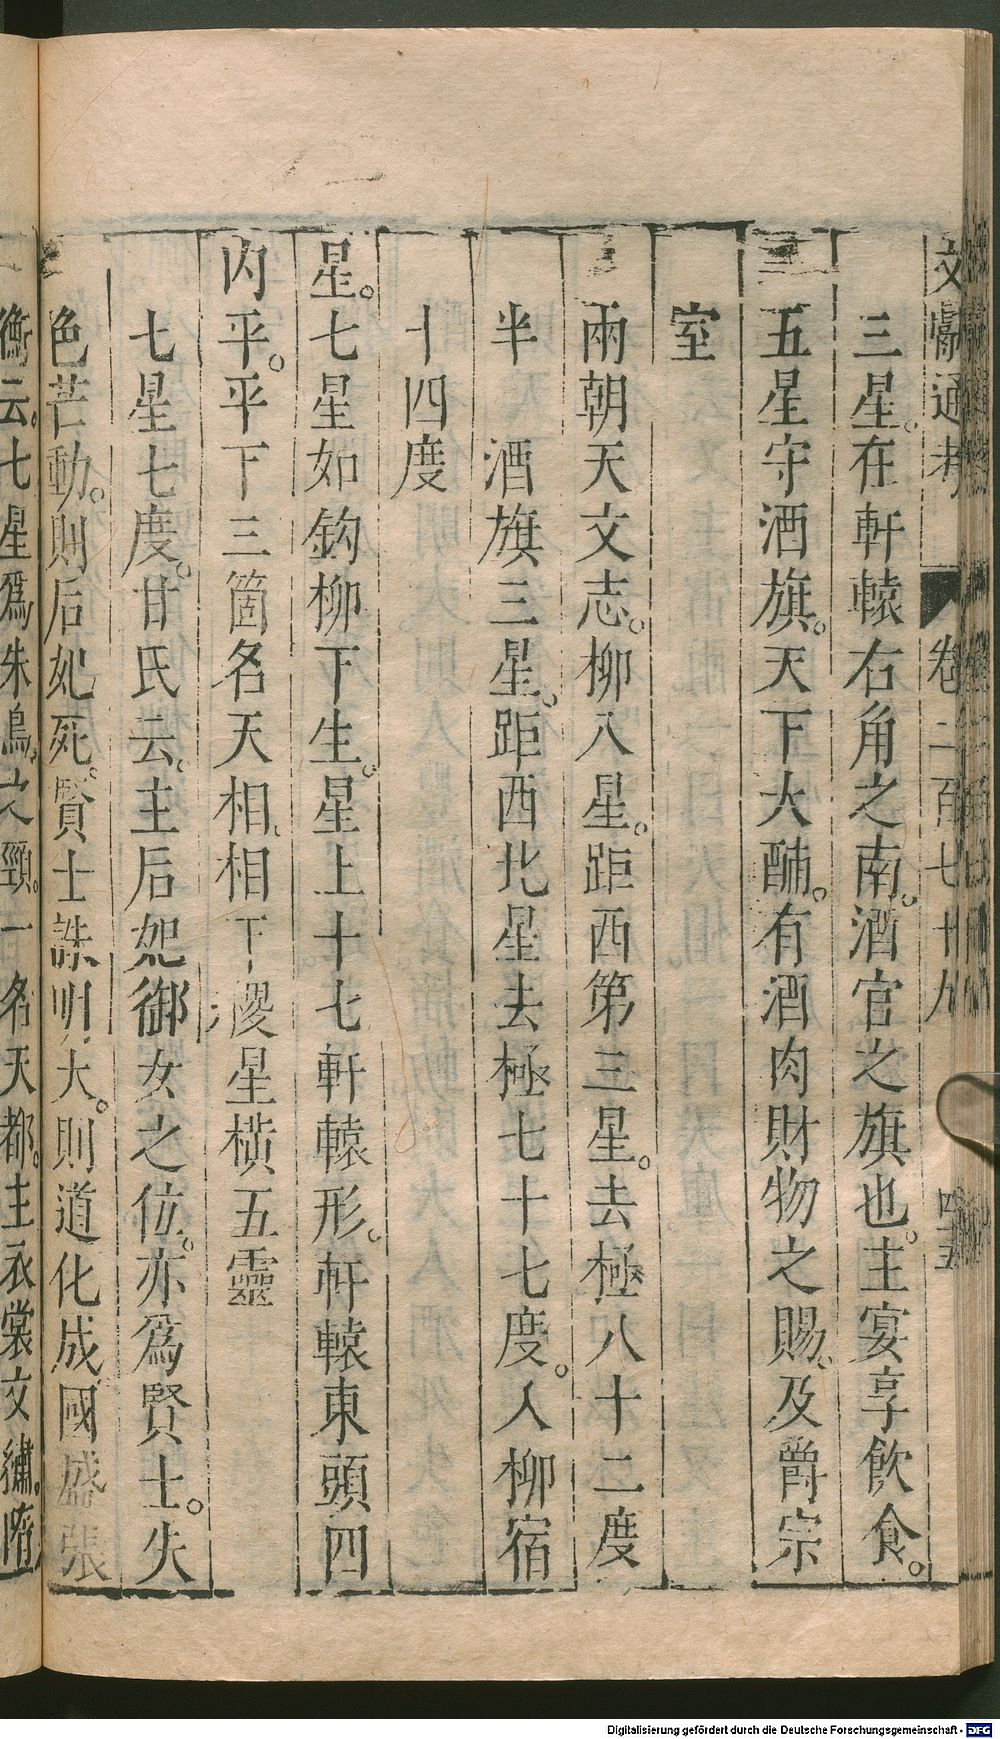 文獻通考 卷二百七十九 四五
三星。在軒轅右角之南。酒官之旗也。主宴享飲食。
五星守酒旗。天下大酺。有酒肉財物之賜。及爵宗
室
兩朝天文志。柳八星。距西第三星。去極八十二度
半 酒旗三星。距西北星去極七十七度。入柳宿
十四度
星。七星如鈎柳下生。星上十七軒轅形。軒轅東頭四
內平。平下三箇名天相。相下稷星橫五靈
七星七度。甘氏云。主后妃御女之位。亦爲賢士。失
色芒動。則后妃死。賢士誅。明大。則道化成。國盛。張
衡云。七星爲朱鳥之頸。一名天都。主衣裳文繡。
Digitalisierung gefördert durch die Deutsche Forschungsgemeinschaft - DFG